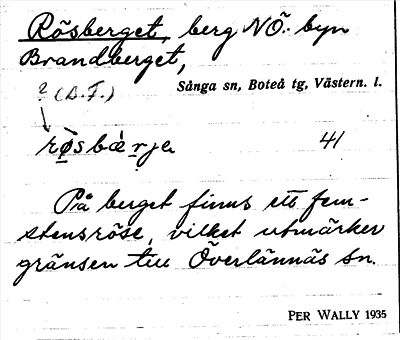 Rösberget, berg NÖ. byn
Brandberget,
? (D.F.)
Sånga sn, Boteå tg, Västern. l.
røsbærje 41
På berget finns ett fem-
stensröse, vilket utmärker
gränsen till Överlännäs sn.
PER WALLY 1935